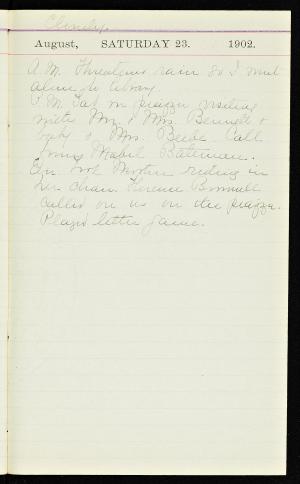 Cloudy.
August, SATURDAY 23. 1902.
A.M. Threatens rain so I went
alone to library.
P.M. Sat on piazza visiting
with Mr. & Mrs. Bennett &
baby & Mrs. Beede. Call
from Mabel Bateman.
Ev. Mother riding in
her chair. Florence Bonnell
called on us on the piazza.
Played letter game.